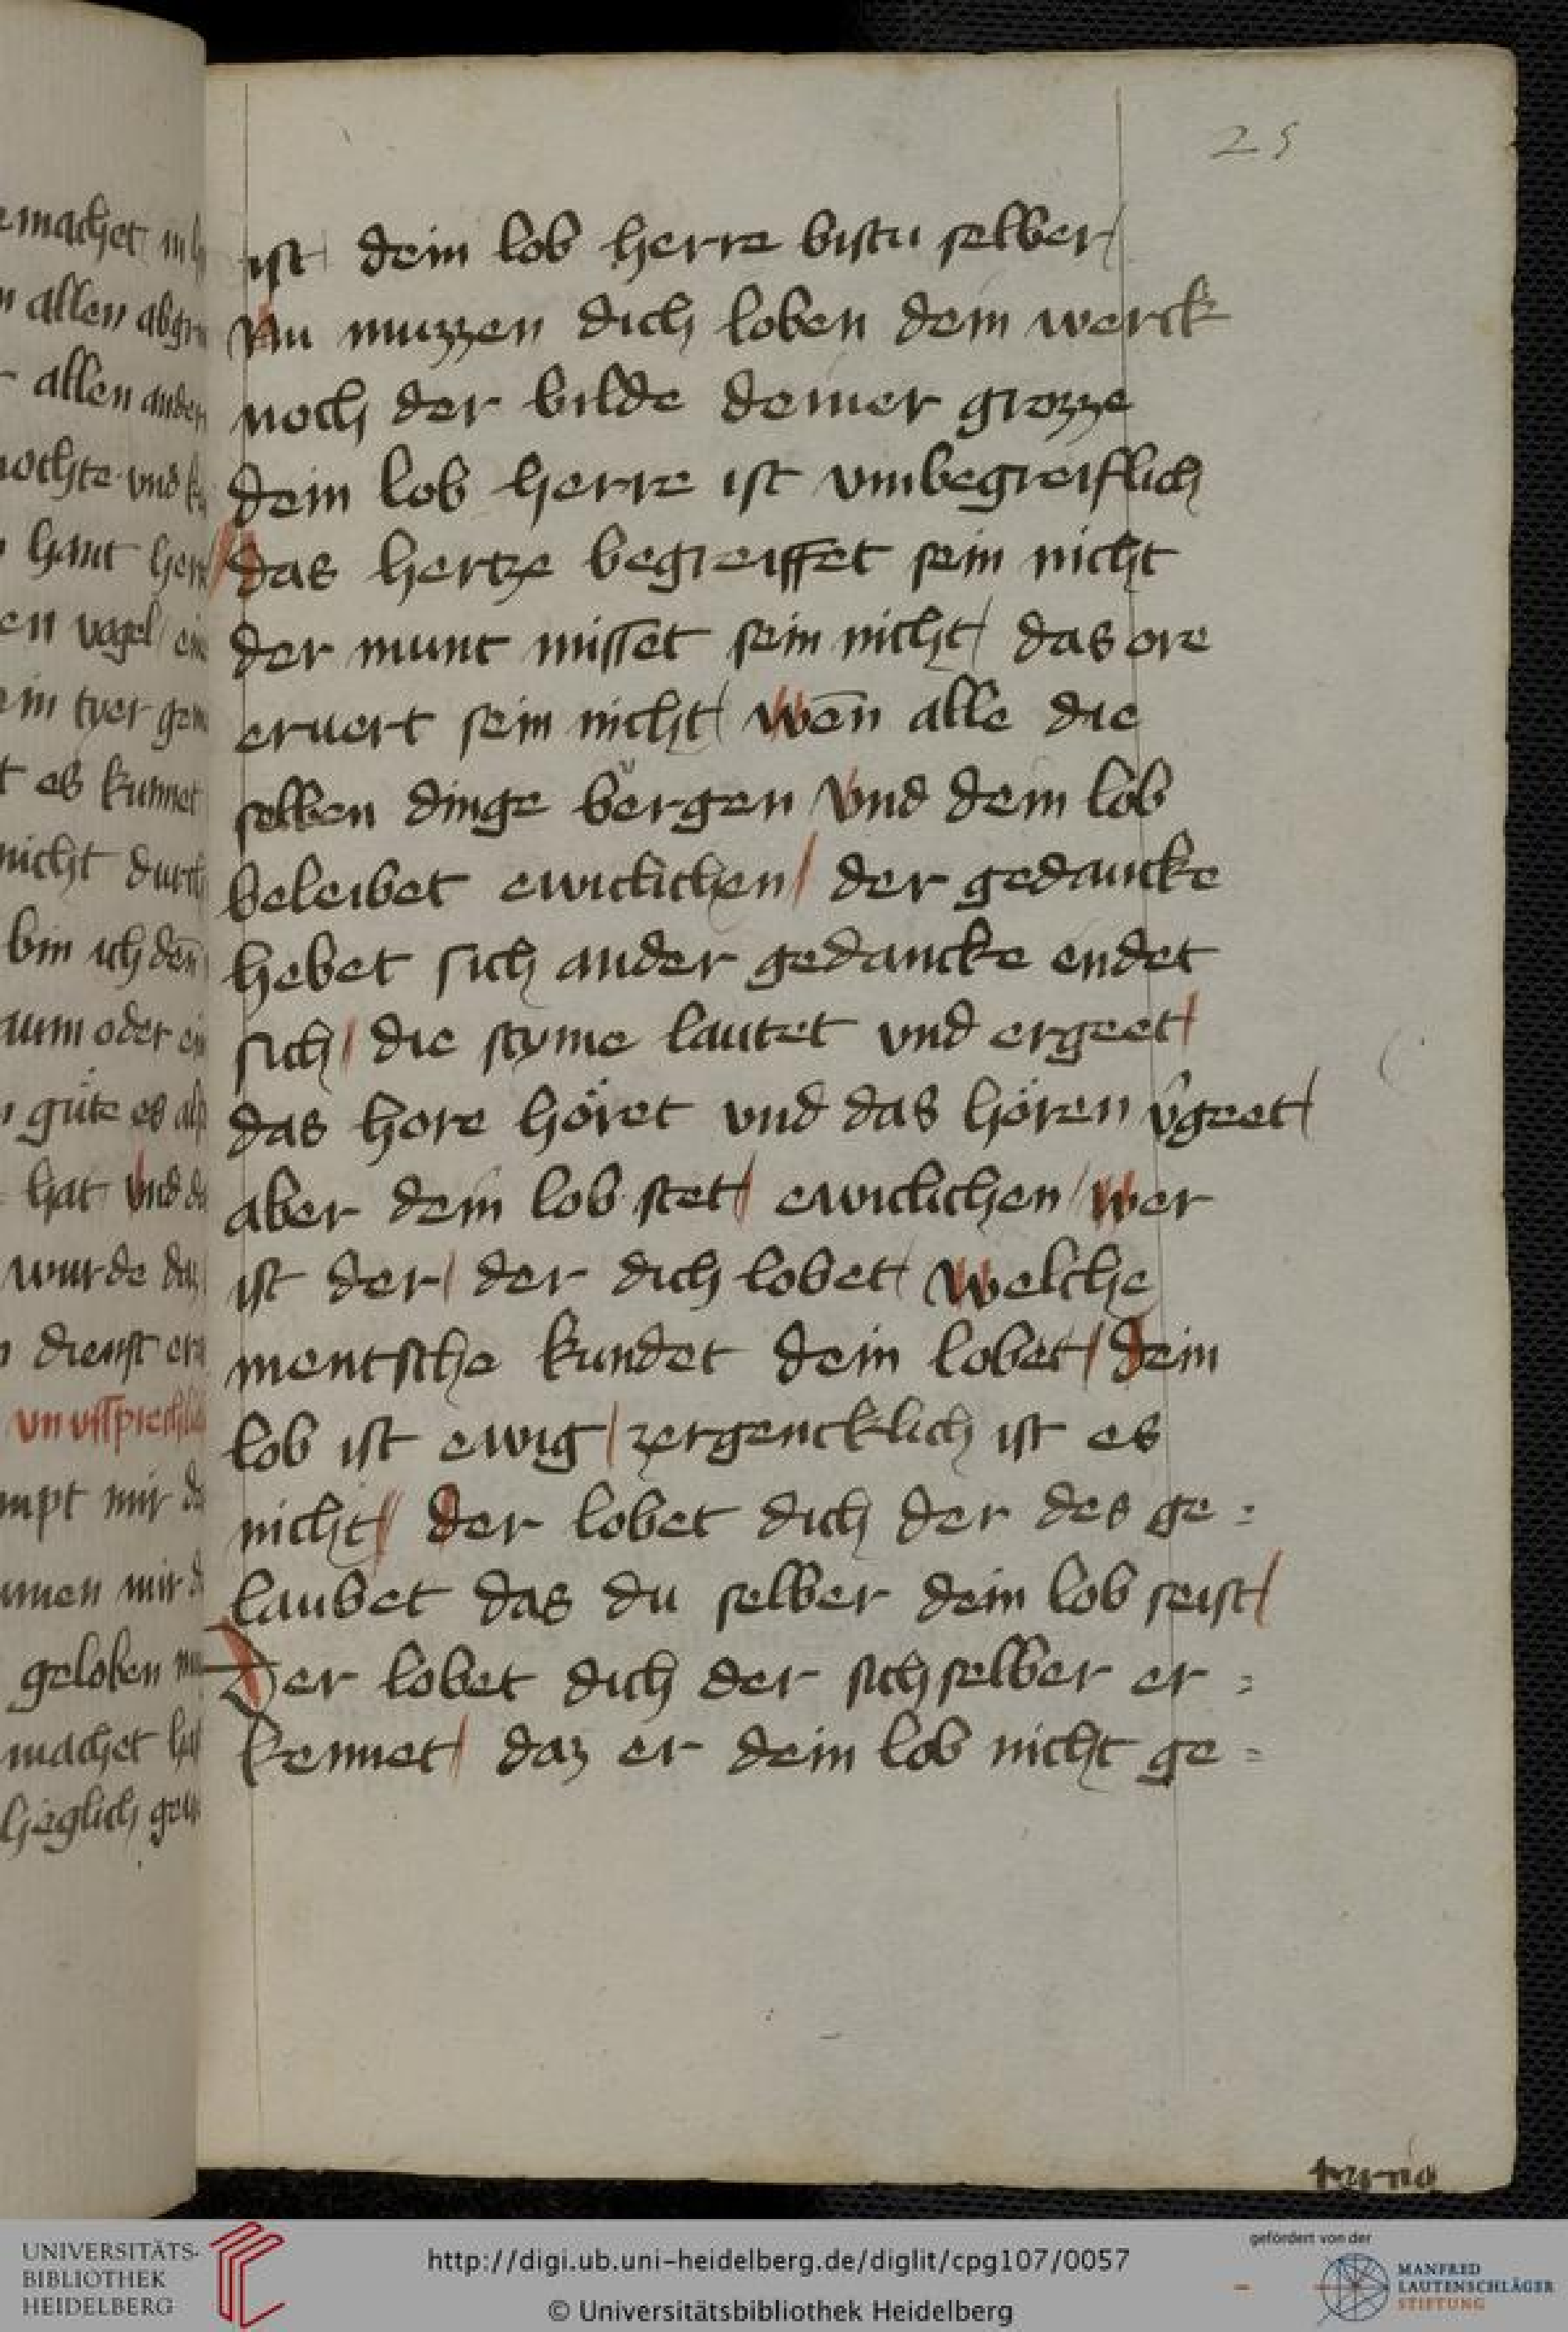 25
ist dein lob herre bistu selber /
Nu muzzen dich loben dein werck
noch der bilde deiner grozze
dein lob herre ist vmbegreiflich
das hertze begreiffet sein nicht
der munt misset sein nicht / das ore
eruert sein nicht / wen̄ alle die
selben dinge bergen Vnd dein lob
beleibet ewiclichen / der gedancke
hebet sich ander gedancke endet
sich / die styme lautet vnd ergeet /
das hore höret vnd das hören v̂geet /
aber dein lob stet / ewiclichen / wer
ist der / der dich lobet / welche
mentsche kundet dein lobet / dein
lob ist ewig / zergencklich ist es
nicht / der lobet dich der des ge =
laubet das du selber dein lob seist /
Der lobet dich der sich selber er =
kennet / daz er dein lob nicht ge =
UNIVERSITÄTS-
BIBLIOTHEK
HEIDELBERG
http://digi.ub.uni-heidelberg.de/diglit/cpg107/0057
© Universitätsbibliothek Heidelberg
gefördert von der
MANFRED
LAUTENSCHLÄGER
STIFTUNG